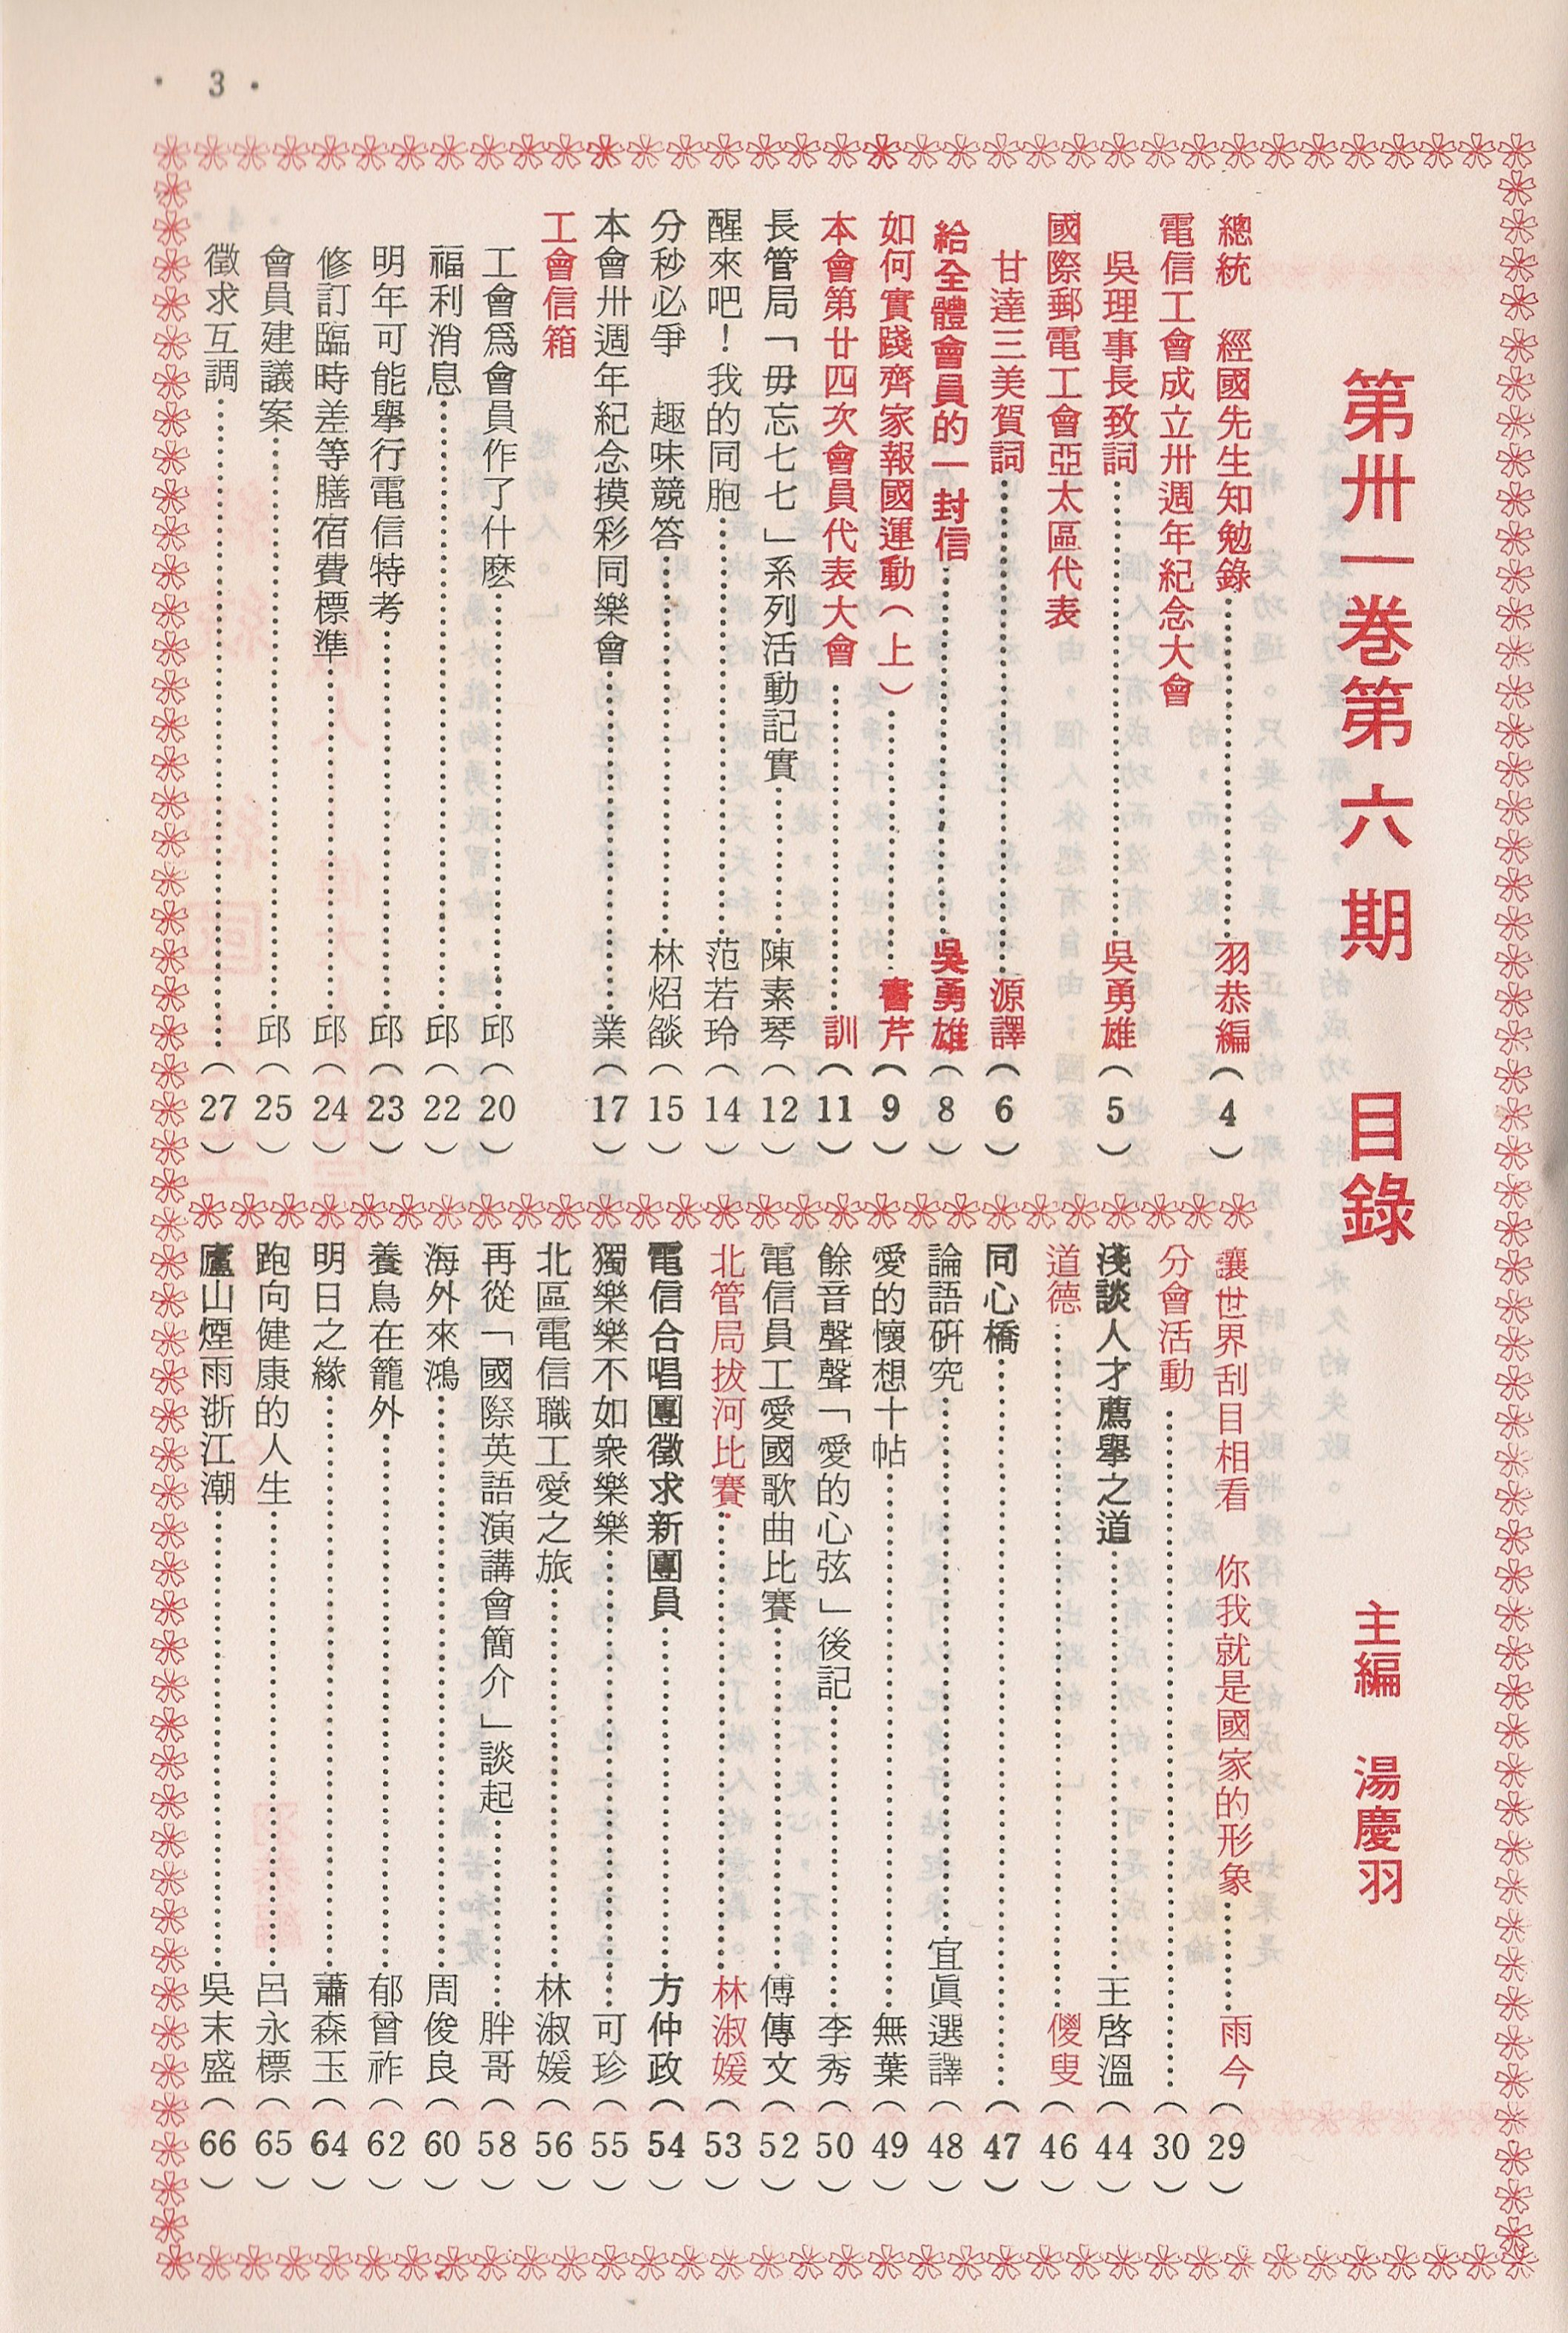 · 3 ·
第卅一卷第六期　目錄
主編　湯慶羽
總統　經國先生知勉錄……羽恭編（4）
電信工會成立卅週年紀念大會
吳理事長致詞……吳勇雄（5）
國際郵電工會亞太區代表
甘達三美賀詞……源譯（6）
給全體會員的一封信……吳勇雄（8）
如何實踐齊家報國運動（上）……書芹（9）
本會第廿四次會員代表大會……訓（11）
長管局「毋忘七七」系列活動記實……陳素琴（12）
醒來吧！我的同胞……范若玲（14）
分秒必爭　趣味競答……林炤燄（15）
本會卅週年紀念摸彩同樂會……業（17）
工會信箱
工會爲會員作了什麽……邱（20）
福利消息……邱（22）
明年可能舉行電信特考……邱（23）
修訂臨時差等膳宿費標準……邱（24）
會員建議案……邱（25）
徵求互調……（27）
讓世界刮目相看　你我就是國家的形象……雨今（29）
分會活動……（30）
淺談人才薦舉之道……王啓溫（44）
道德……儍叟（46）
同心橋……（47）
論語硏究……宜眞選譯（48）
愛的懷想十帖……無葉（49）
餘音聲聲「愛的心弦」後記……李秀（50）
電信員工愛國歌曲比賽……傅傳文（52）
北管局拔河比賽……林淑媛（53）
電信合唱團徵求新團員……方仲政（54）
獨樂樂不如衆樂樂……可珍（55）
北區電信職工愛之旅……林淑媛（56）
再從「國際英語演講會簡介」談起……胖哥（58）
海外來鴻……周俊良（60）
養鳥在籠外……郁曾祚（62）
明日之緣……蕭森玉（64）
跑向健康的人生……呂永標（65）
廬山煙雨浙江潮……吳末盛（66）